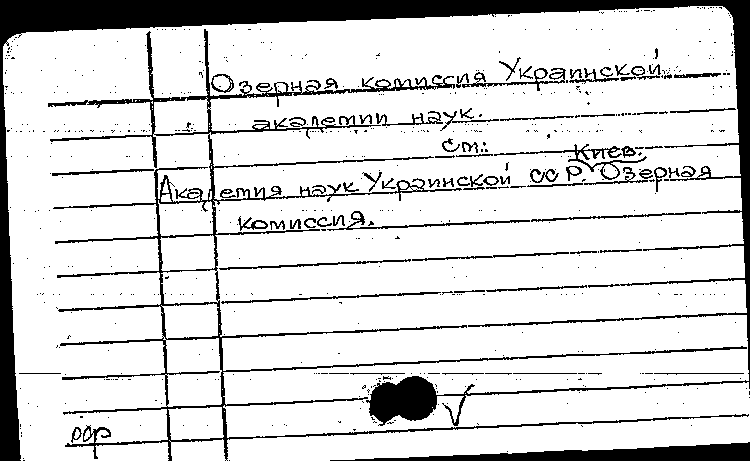 Озерная комиссия Украинской
академии наук.
См:
Киев.
Академия наук Украинской ССР. Озерная
комиссия.